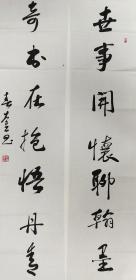 世事開懷聊翰墨
奇書在抱悟丹青